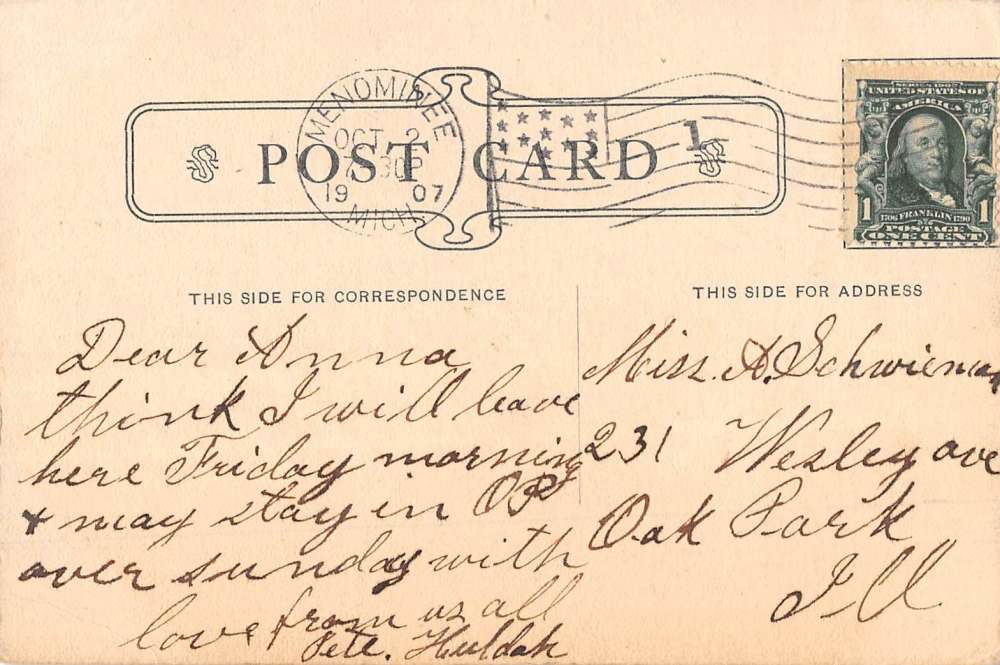 MENOMINEE
OCT 2
30P
19 07
MICH.
1
SERIES 1902
UNITED STATES OF
AMERICA
1 1
1706 FRANKLIN 1790
POSTAGE
ONE CENT
POST CARD
THIS SIDE FOR CORRESPONDENCE
THIS SIDE FOR ADDRESS
Dear Anna
think I will leave
here Friday morning
+ may stay in OP
over sunday with
love from us all
Pete. Huldah
Miss. A. Schwieman
231 Wesley ave
Oak Park
Ill